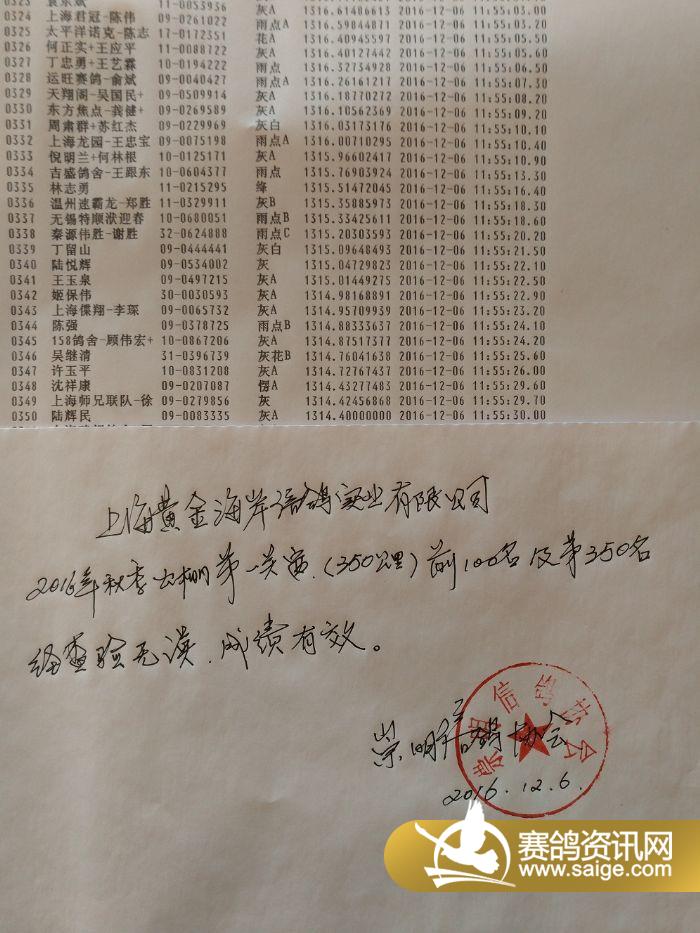 0323 袁东斌 11-0053936 灰A 1316.61486613 2016-12-06 11:55:03.00
0324 上海君冠-陈伟 09-0261022 雨点A 1316.59844871 2016-12-06 11:55:03.20
0325 太平洋诺克-陈志 17-0172351 花A 1316.40945597 2016-12-06 11:55:05.50
0326 何正实+王应平 11-0088722 灰A 1316.40127442 2016-12-06 11:55:05.60
0327 丁忠勇+王艺霖 10-0194222 雨点 1316.32734928 2016-12-06 11:55:06.50
0328 运旺赛鸽-俞斌 09-0040427 雨点A 1316.26161217 2016-12-06 11:55:07.30
0329 天翔阁-吴国民+ 09-0509914 灰A 1316.18770272 2016-12-06 11:55:08.20
0330 东方焦点-龚健+ 09-0269589 灰A 1316.10562369 2016-12-06 11:55:09.20
0331 周肃群+苏红杰 09-0229969 灰白 1316.03173176 2016-12-06 11:55:10.10
0332 上海龙园-王忠宝 09-0075198 雨点A 1316.00710295 2016-12-06 11:55:10.40
0333 倪明兰+何林根 10-0125171 灰A 1315.96602417 2016-12-06 11:55:10.90
0334 吉盛鸽舍-王跟东 10-0604377 雨点 1315.76903924 2016-12-06 11:55:13.30
0335 林志勇 11-0215295 绛 1315.51472045 2016-12-06 11:55:16.40
0336 温州速霸龙-郑胜 11-0329911 灰B 1315.35885973 2016-12-06 11:55:18.30
0337 无锡特顺洑迎春 10-0680051 雨点B 1315.33425611 2016-12-06 11:55:18.60
0338 秦源伟胜-谢胜 32-0624888 雨点C 1315.20303593 2016-12-06 11:55:20.20
0339 丁留山 09-0444441 灰白 1315.09648493 2016-12-06 11:55:21.50
0340 陆悦辉 09-0534002 灰 1315.04729823 2016-12-06 11:55:22.10
0341 王玉泉 09-0497215 灰A 1315.01449275 2016-12-06 11:55:22.50
0342 姬保伟 30-0030593 灰A 1314.98168891 2016-12-06 11:55:22.90
0343 上海偞翔-李琛 09-0065732 灰A 1314.95709939 2016-12-06 11:55:23.20
0344 陈强 09-0378725 雨点B 1314.88333637 2016-12-06 11:55:24.10
0345 158鸽舍-顾伟宏+ 10-0867206 灰A 1314.87517377 2016-12-06 11:55:24.20
0346 吴继清 31-0396739 灰花B 1314.76041638 2016-12-06 11:55:25.60
0347 许玉平 10-0831208 灰A 1314.72767437 2016-12-06 11:55:26.00
0348 沈祥康 09-0207087 楞A 1314.43277483 2016-12-06 11:55:29.60
0349 上海师兄联队-徐 09-0279856 灰 1314.42456868 2016-12-06 11:55:29.70
0350 陆辉民 09-0083335 灰A 1314.40000000 2016-12-06 11:55:30.00
上海黄金海岸信鸽实业有限公司
2016年秋季公棚第一关赛.(350公里)前100名及第350名
经查验无误.成绩有效。
崇明信鸽协会
崇明信鸽协会
2016.12.6.
赛鸽资讯网
www.saige.com